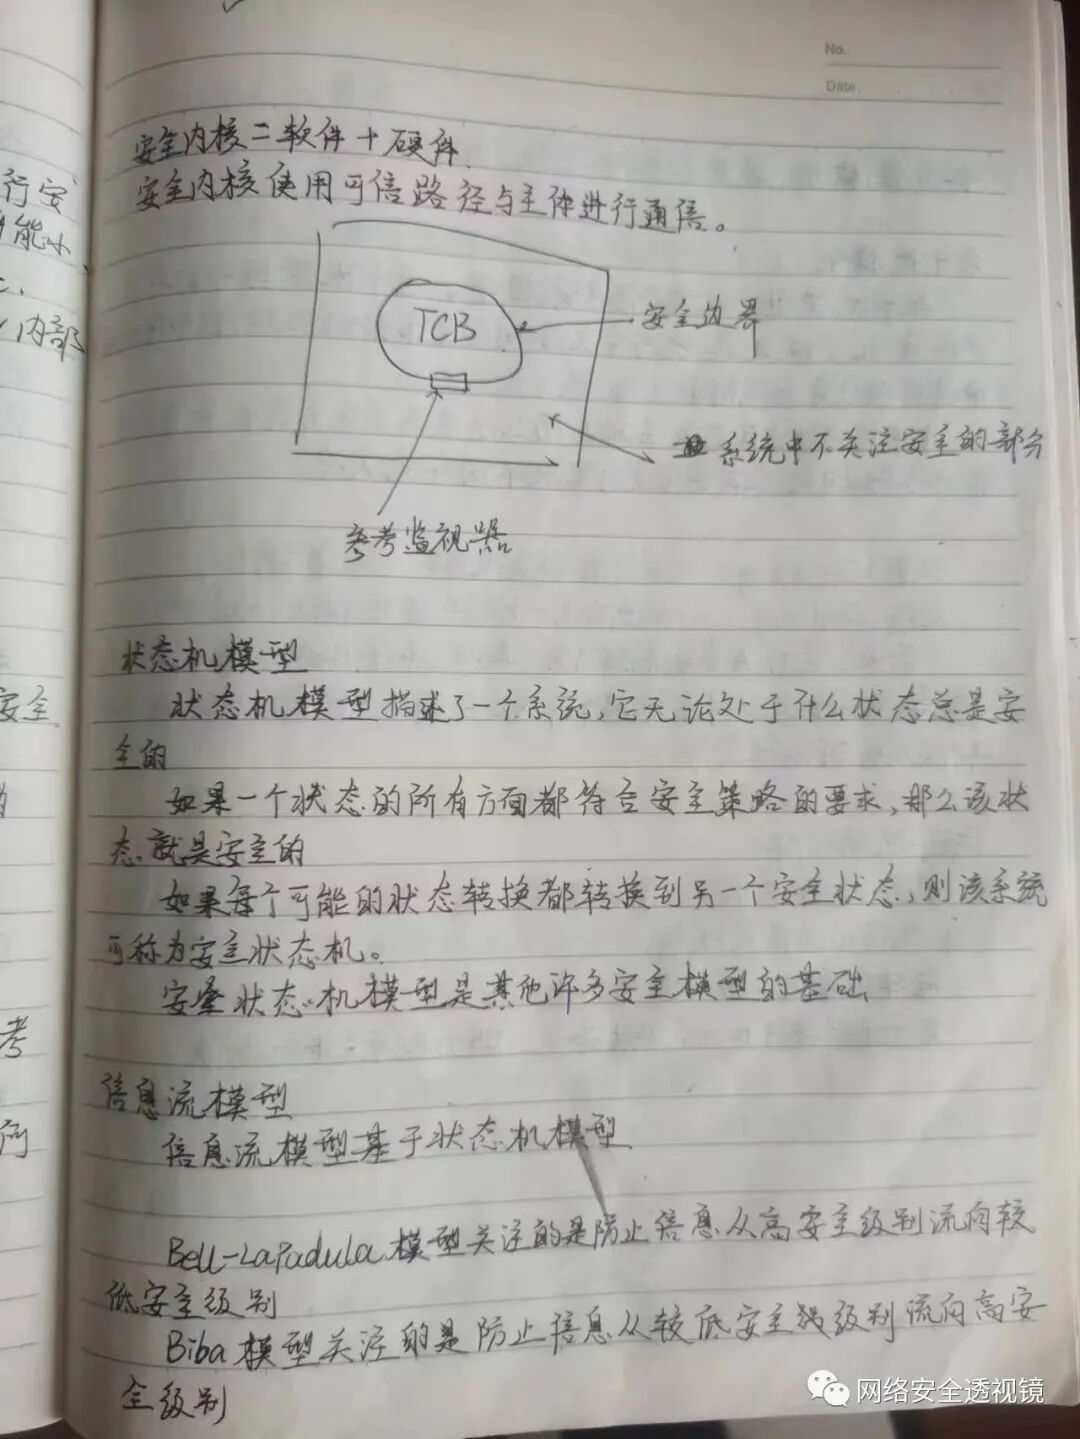 No.
Date.
安全内核=软件+硬件.
安全内核使用可信路径与主体进行通信。
TCB
安全边界
系统中不关注安全的部分
参考监视器
状态机模型
状态机模型描述了一个系统,它无论处于什么状态总是安
全的
如果一个状态的所有方面都符合安全策略的要求,那么该状
态就是安全的
如果每个可能的状态转换都转换到另一个安全状态,则该系统
可称为安全状态机。
安全状态机模型是其他许多安全模型的基础
信息流模型
信息流模型基于状态机模型.
Bell-LaPadula模型关注的是防止信息从高安全级别流向较
低安全级别
Biba模型关注的是防止信息从较低安全级别流向高安
全级别
行安
能小
内部
安全
考
网络安全透视镜